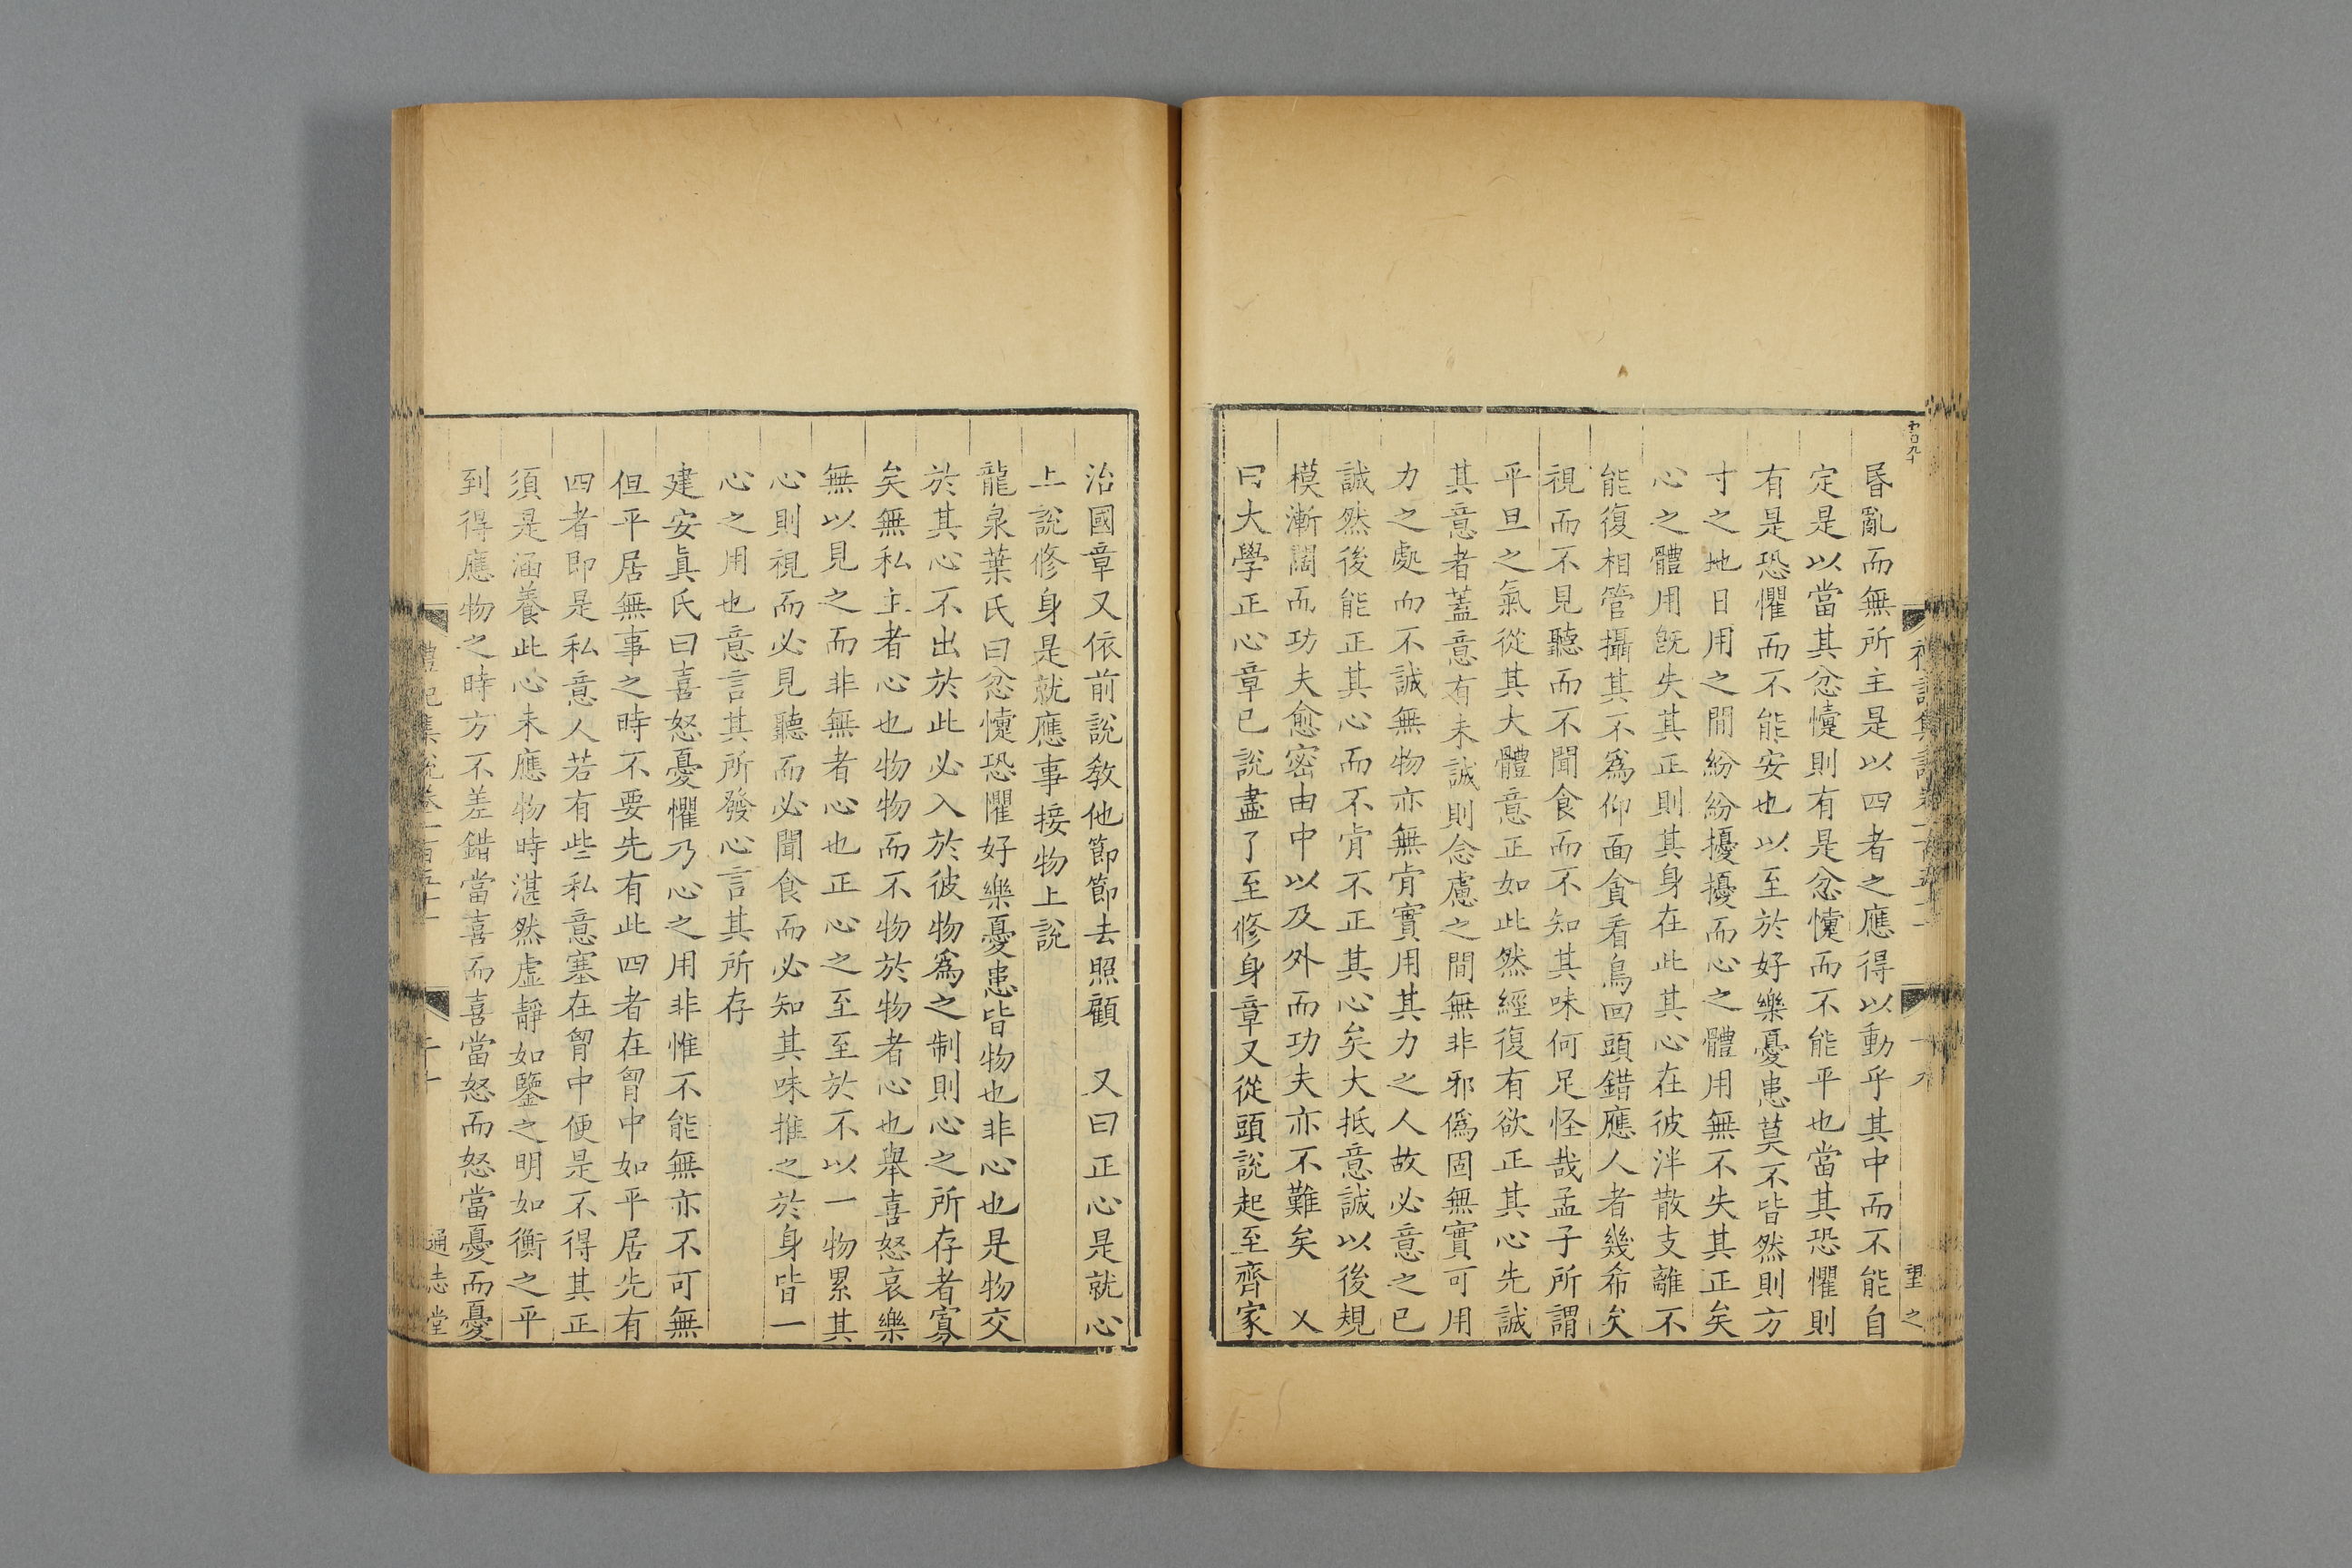 昬亂而無所主是以四者之應得以動乎其中而不能自
定是以當其忿懥則有是忿懥而不能平也當其恐懼則
有是恐懼而不能安也以至於好樂憂患莫不皆然則方
寸之地日用之間紛紛擾擾而心之體用無不失其正矣
心之體用旣失其正則其身在此其心在彼泮散支離不
能復相管攝其不爲仰面貪看鳥回頭錯應人者幾希矣
視而不見聽而不聞食而不知其味何足怪哉孟子所謂
平旦之氣從其大體意正如此然經復有欲正其心先誠
其意者蓋意有未誠則念慮之間無非邪僞固無實可用
力之處而不誠無物亦無肯實用其力之人故必意之已
誠然後能正其心而不肯不正其心矣大抵意誠以後規
模漸闊而功夫愈密由中以及外而功夫亦不難矣 又
曰大學正心章已說盡了至修身章又從頭說起至齊家
望之
治國章又依前說敎他節節去照顧 又曰正心是就心
上說修身是就應事接物上說
龍泉葉氏曰忿懥恐懼好樂憂患皆物也非心也是物交
於其心不出於此必入於彼物爲之制則心之所存者寡
矣無私主者心也物物而不物於物者心也舉喜怒哀樂
無以見之而非無者心也正心之至至於不以一物累其
心則視而必見聽而必聞食而必知其味推之於身皆一
心之用也意言其所發心言其所存
建安眞氏曰喜怒憂懼乃心之用非惟不能無亦不可無
但平居無事之時不要先有此四者在胷中如平居先有
四者即是私意人若有些私意塞在胷中便是不得其正
須是涵養此心未應物時湛然虛靜如鑒之明如衡之平
到得應物之時方不差錯當喜而喜當怒而怒當憂而憂
禮記集說卷一百五十 二十 通志堂